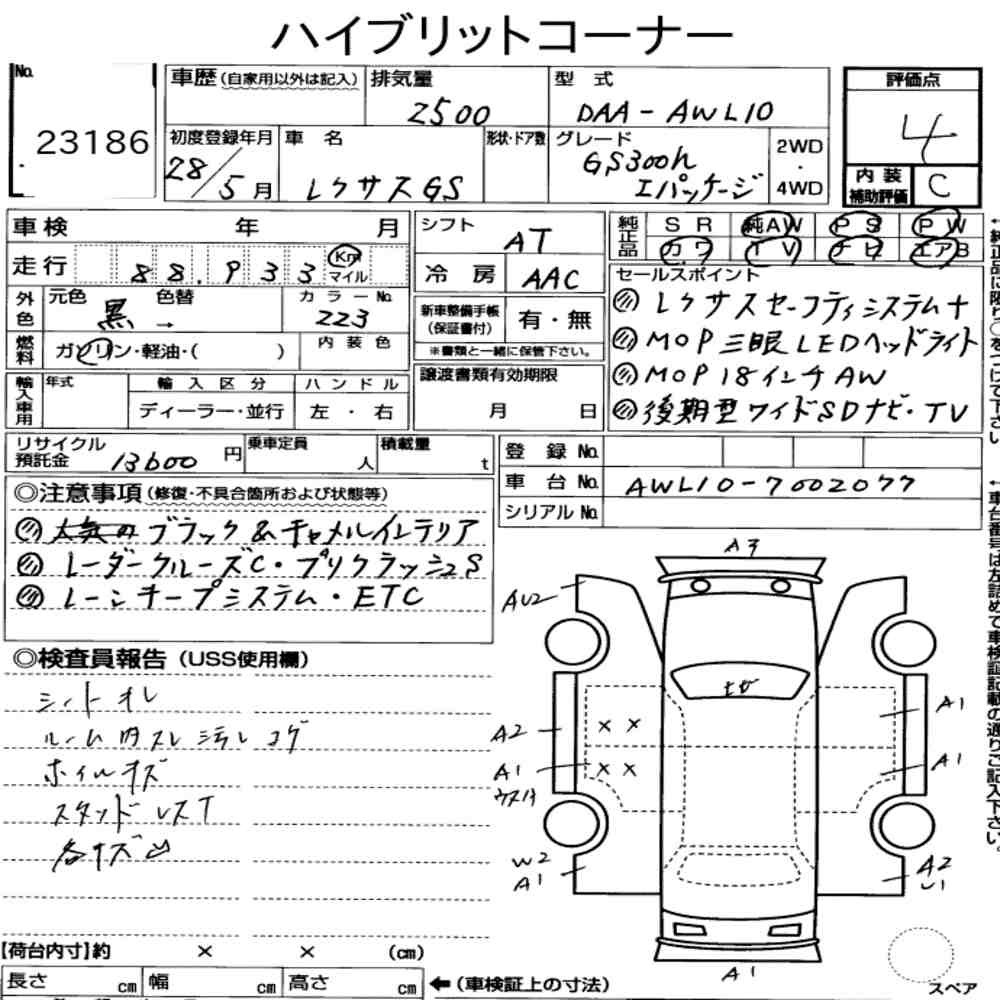 ハイブリットコーナー
No.
23186
車歴(自家用以外は記入)
排気量
2500
型 式
DAA-AWL10
評価点
4
初度登録年月
28/5月
車 名
レクサスGS
形状・ドア数
グレード
GS300h
Iパッケージ
2WD
・
4WD
内 装
補助評価
C
車検 年 月
シフト
AT
純正品
SR 純AW PS PW
カワ TV ナビ エアB
走行 88,933 Km マイル
冷 房 AAC
セールスポイント
レクサスセーフティシステム+
MOP三眼LEDヘッドライト
MOP18インチAW
後期型ワイドSDナビ・TV
外色
元色 黒→
色替
カラーNo.
223
新車整備手帳
(保証書付)
有・無
※書類と一緒に保管下さい。
燃料
ガソリン・軽油・( )
内 装 色
譲渡書類有効期限
月 日
輸入車用
年式
輸 入 区 分
ハ ン ド ル
ディーラー・並行
左 ・ 右
リサイクル
預託金 13600 円
乗車定員
人
積載量
t
登 録 No.
車 台 No.
AWL10-7002077
シリアル No.
◎注意事項(修復・不具合箇所および状態等)
ブラック&キャメルインテリア
レーダークルーズC・プリクラッシュS
レーンキープシステム・ETC
◎検査員報告(USS使用欄)
シートスレ
ルーム内スレ汚レコゲ
ホイルキズ
スタッドレスT
各キズ凹
A3
AU2
ナビ
A2
A1
ウスハ
W2
A1
A1
A1
A2
U1
A1
スペア
【荷台内寸】約 × × (cm)
長さ cm
幅 cm
高さ cm
←(車検証上の寸法)
←純正品に限り○をつけて下さい
←車台番号は左詰めで車検証記載の通りご記入下さい。